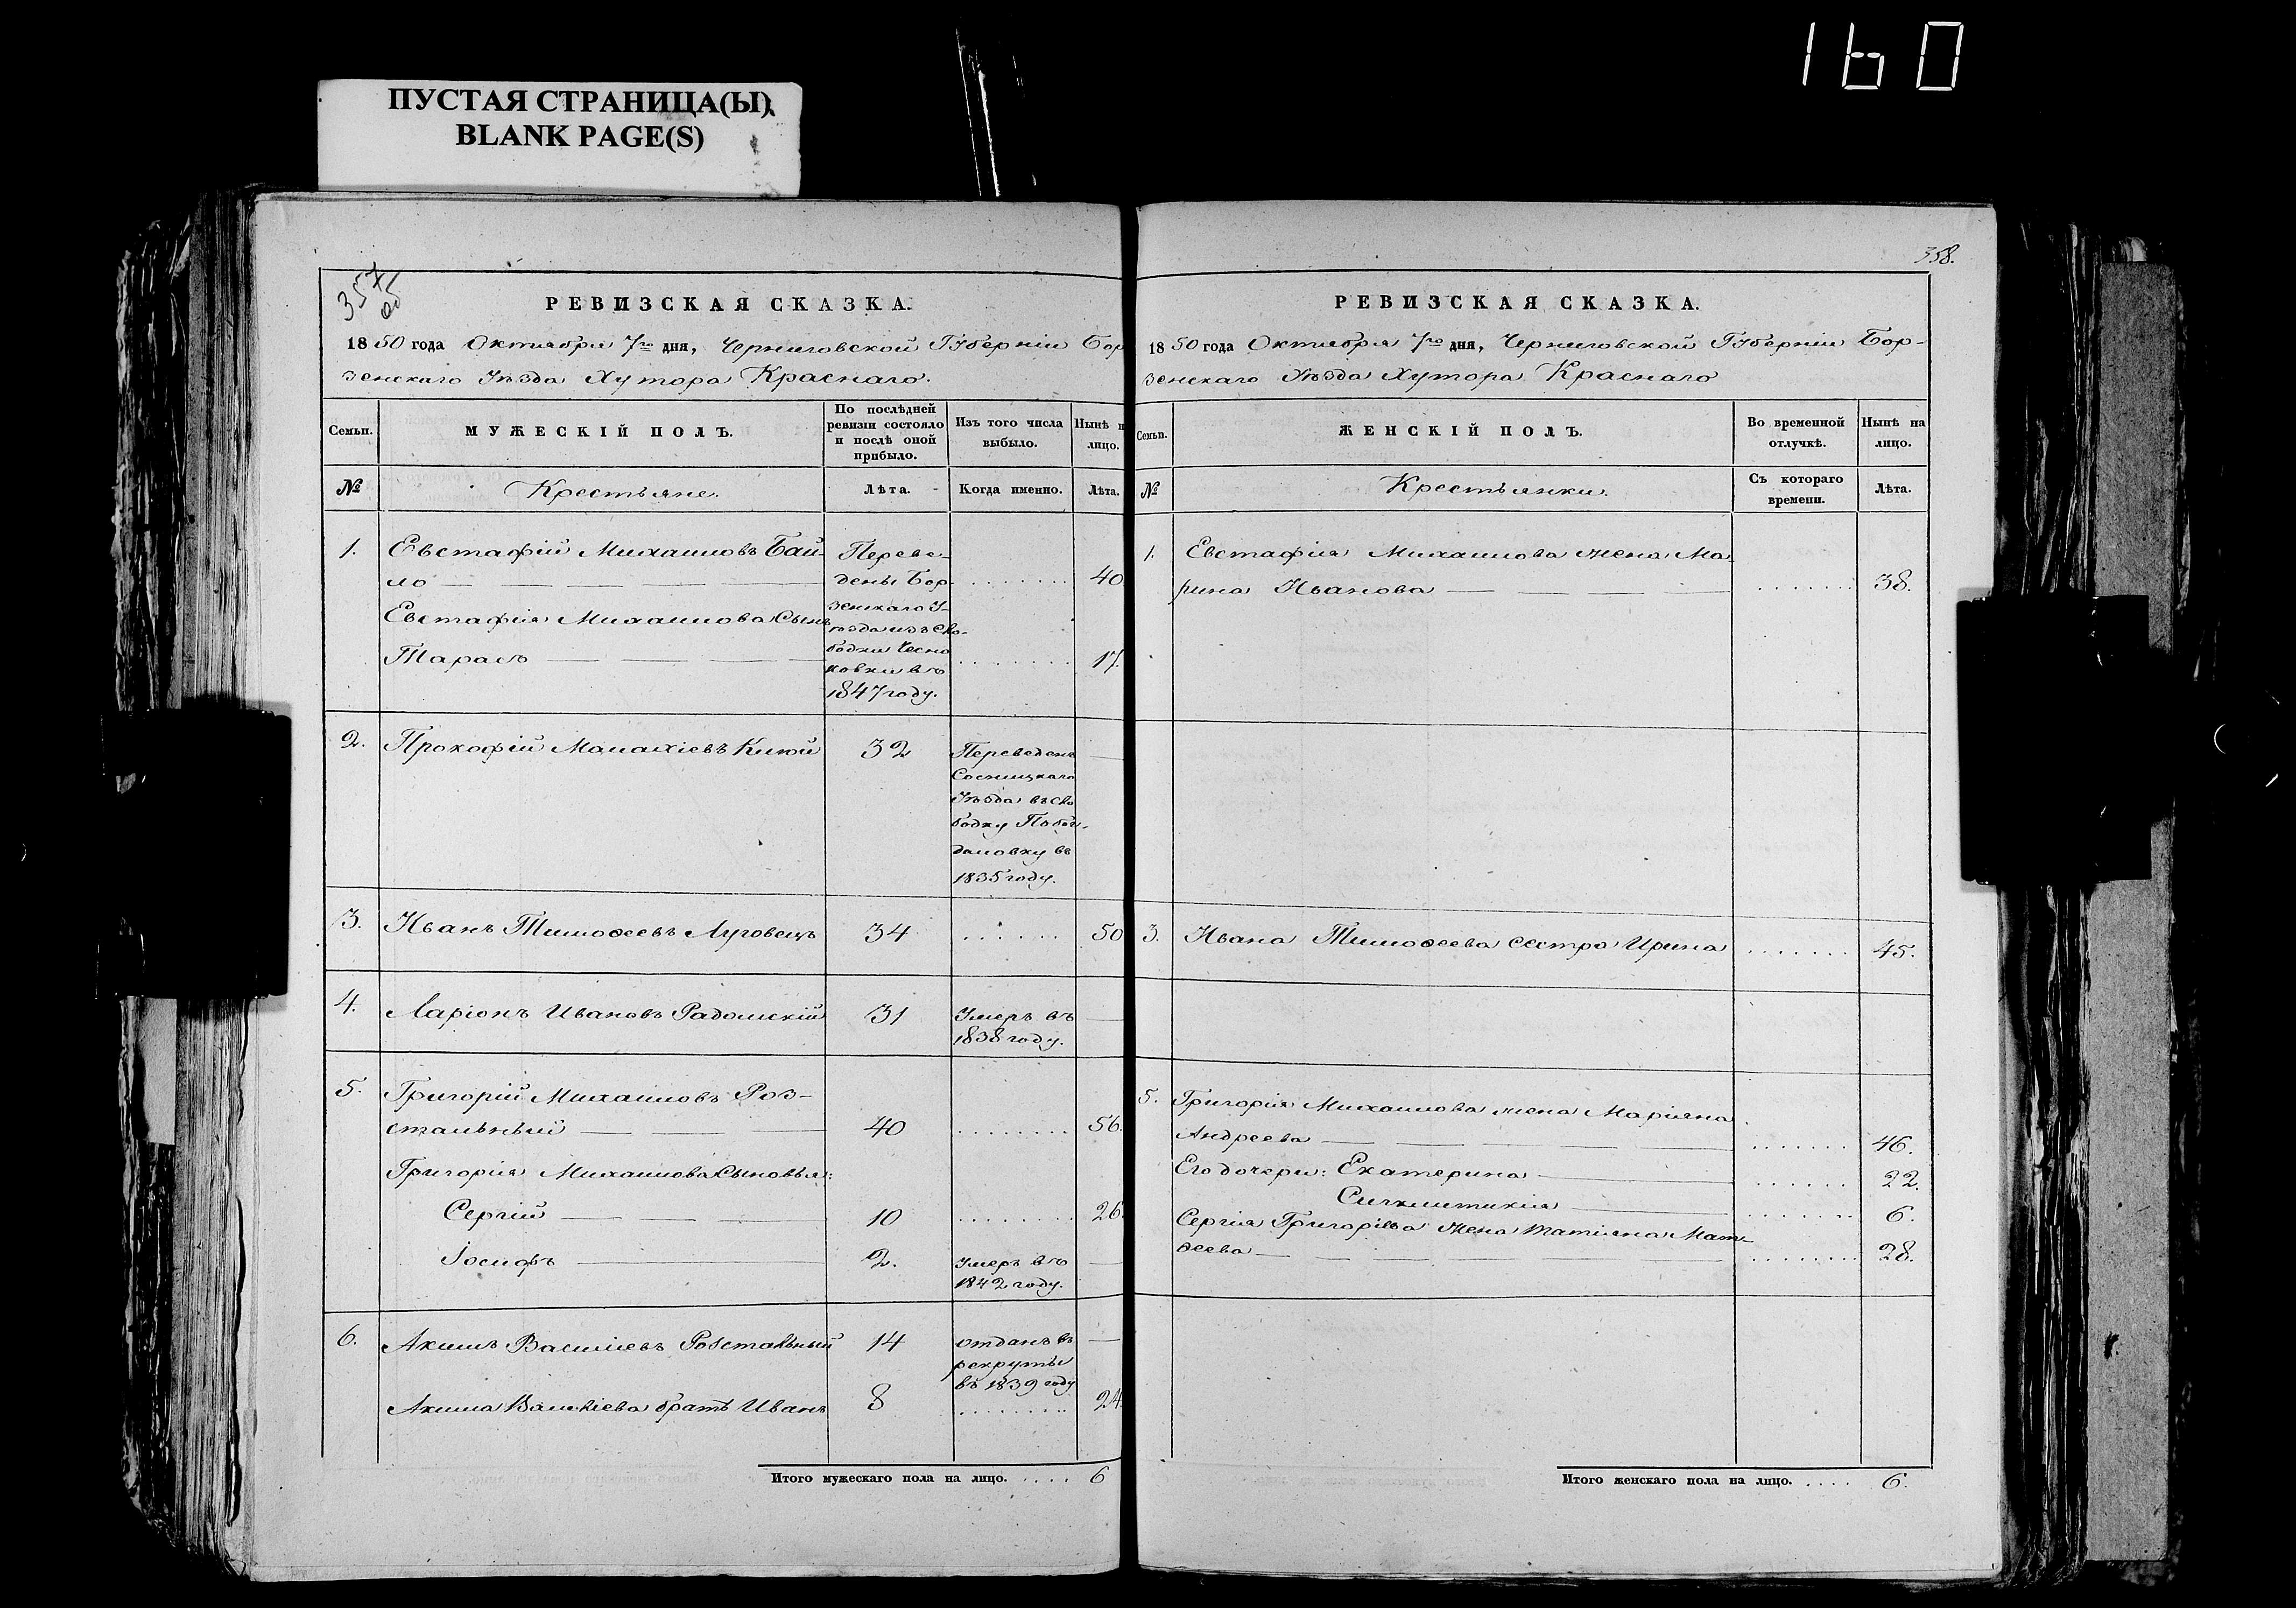 160
ПУСТАЯ СТРАНИЦА(Ы)
BLANK PAGE(S)
357 об
РЕВИЗСКАЯ СКАЗКА.
1850 года Октября 7го дня, Черниговской Губерніи Бор
зенскаго Уѣзда Хутора Краснаго.
Семьи. МУЖЕСКІЙ ПОЛЪ. По послѣдней ревизіи состояло и послѣ оной прибыло. Изъ того числа выбыло. Нынѣ н лицо.
№ Крестьяне. Лѣта. Когда именно. Лѣта.
1. Евстафій Михаиловъ Бай-
ло 40
Евстафія Михаилова Сынъ
Тарасъ 17.
Переве-
дены Бор-
зенскаго У-
ѣзда изъ Сло-
бодки Чесно
ковки въ
1847 году.
2. Прокофій Малахіевъ 32
Переведенъ
Сосницкаго
Уѣзда въ Сло
бодку
въ
1835 году.
3. Иванъ Тимофеевъ Луговецъ 34 50
4. Ларіонъ Ивановъ Радомскій 31 Умеръ въ
1838 году.
5. Григорій Михаиловъ Роз-
стальный 40 56.
Григорія Михаилова Сыновья:
Сергій 10 26.
Іосифъ 2. Умеръ въ
1842 году.
6. Акимъ Василіевъ Розстальный 14 отданъ въ
рекруты
въ 1839 году
Акима Василіева братъ Иванъ 8 24.
Итого мужескаго пола на лицо. .... 6
358.
РЕВИЗСКАЯ СКАЗКА.
1850 года Октября 7го дня, Черниговской Губерніи Бор-
зенскаго Уѣзда Хутора Краснаго
Семьи. ЖЕНСКІЙ ПОЛЪ. Во временной отлучкѣ. Нынѣ на лицо.
№ Крестьянки. Съ котораго времени. Лѣта.
1. Евстафія Михаилова жена Ма
рина Иванова 38.
3. Ивана Тимофеева сестра Ирина 45.
5. Григорія Михаилова жена Маріяна
Андреева 46.
Его дочери: Екатерина 22.
6.
Сергія Григоріева жена Татіяна Мат-
феева 28.
Итого женскаго пола на лицо. .... 6.